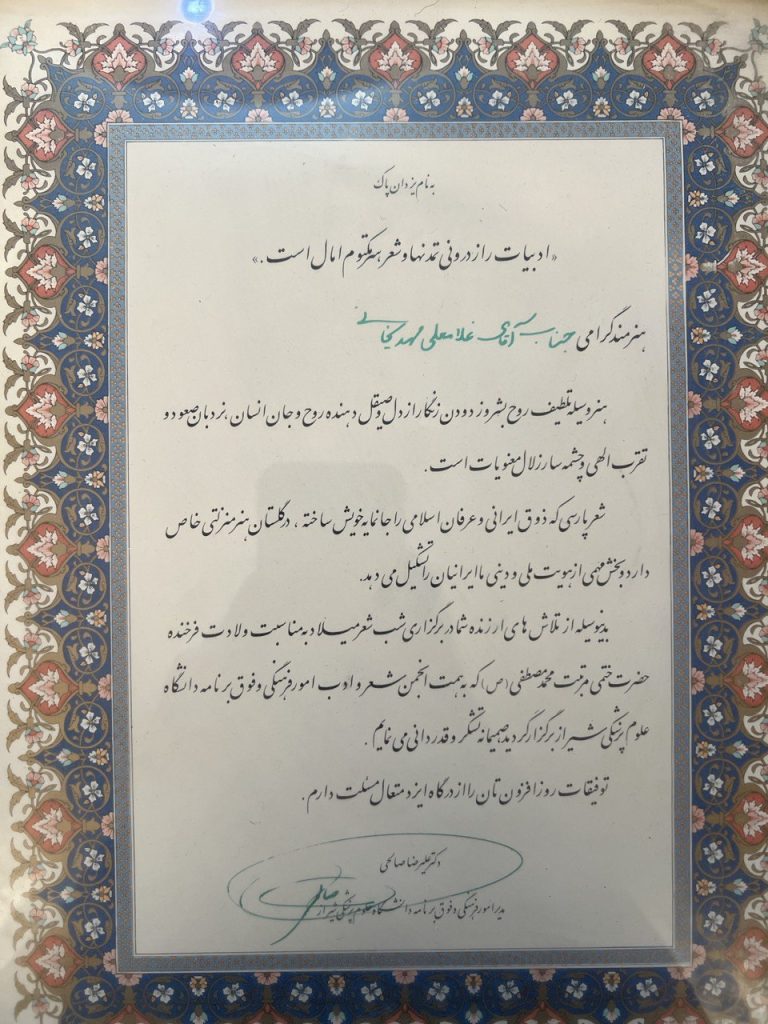 به نام یزدان پاک
«ادبیات راز درونی تمدنها و شعر هنر مکتوم امال است.»
هنرمند گرامی جناب آقای غلامعلی مهدیخانی
هنر وسیله تلطیف روح بشر و زدودن زنگار از دل و صیقل دهنده روح و جان انسان، نردبان صعود و
تقرب الهی و چشمه سار زلال معنویات است.
شعر پارسی که ذوق ایرانی و عرفان اسلامی را جانمایه خویش ساخته، در گلستان هنر منزلتی خاص
دارد و بخش مهمی از هویت ملی و دینی ما ایرانیان را تشکیل می دهد.
بدینوسیله از تلاش های ارزنده شما در برگزاری شب شعر میلاد به مناسبت ولادت فرخنده
حضرت ختمی مرتبت محمد مصطفی (ص) که به همت انجمن شعر و ادب امور فرهنگی و فوق برنامه دانشگاه
علوم پزشکی شیراز برگزار گردید صمیمانه تشکر و قدردانی می نمایم.
توفیقات روزافزون تان را از درگاه ایزد متعال مسئلت دارم.
دکتر علیرضا صالحی
مدیر امور فرهنگی و فوق برنامه دانشگاه علوم پزشکی شیراز